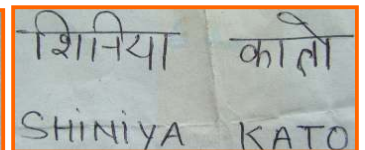 शिनिया कातो
SHINiYA KATO